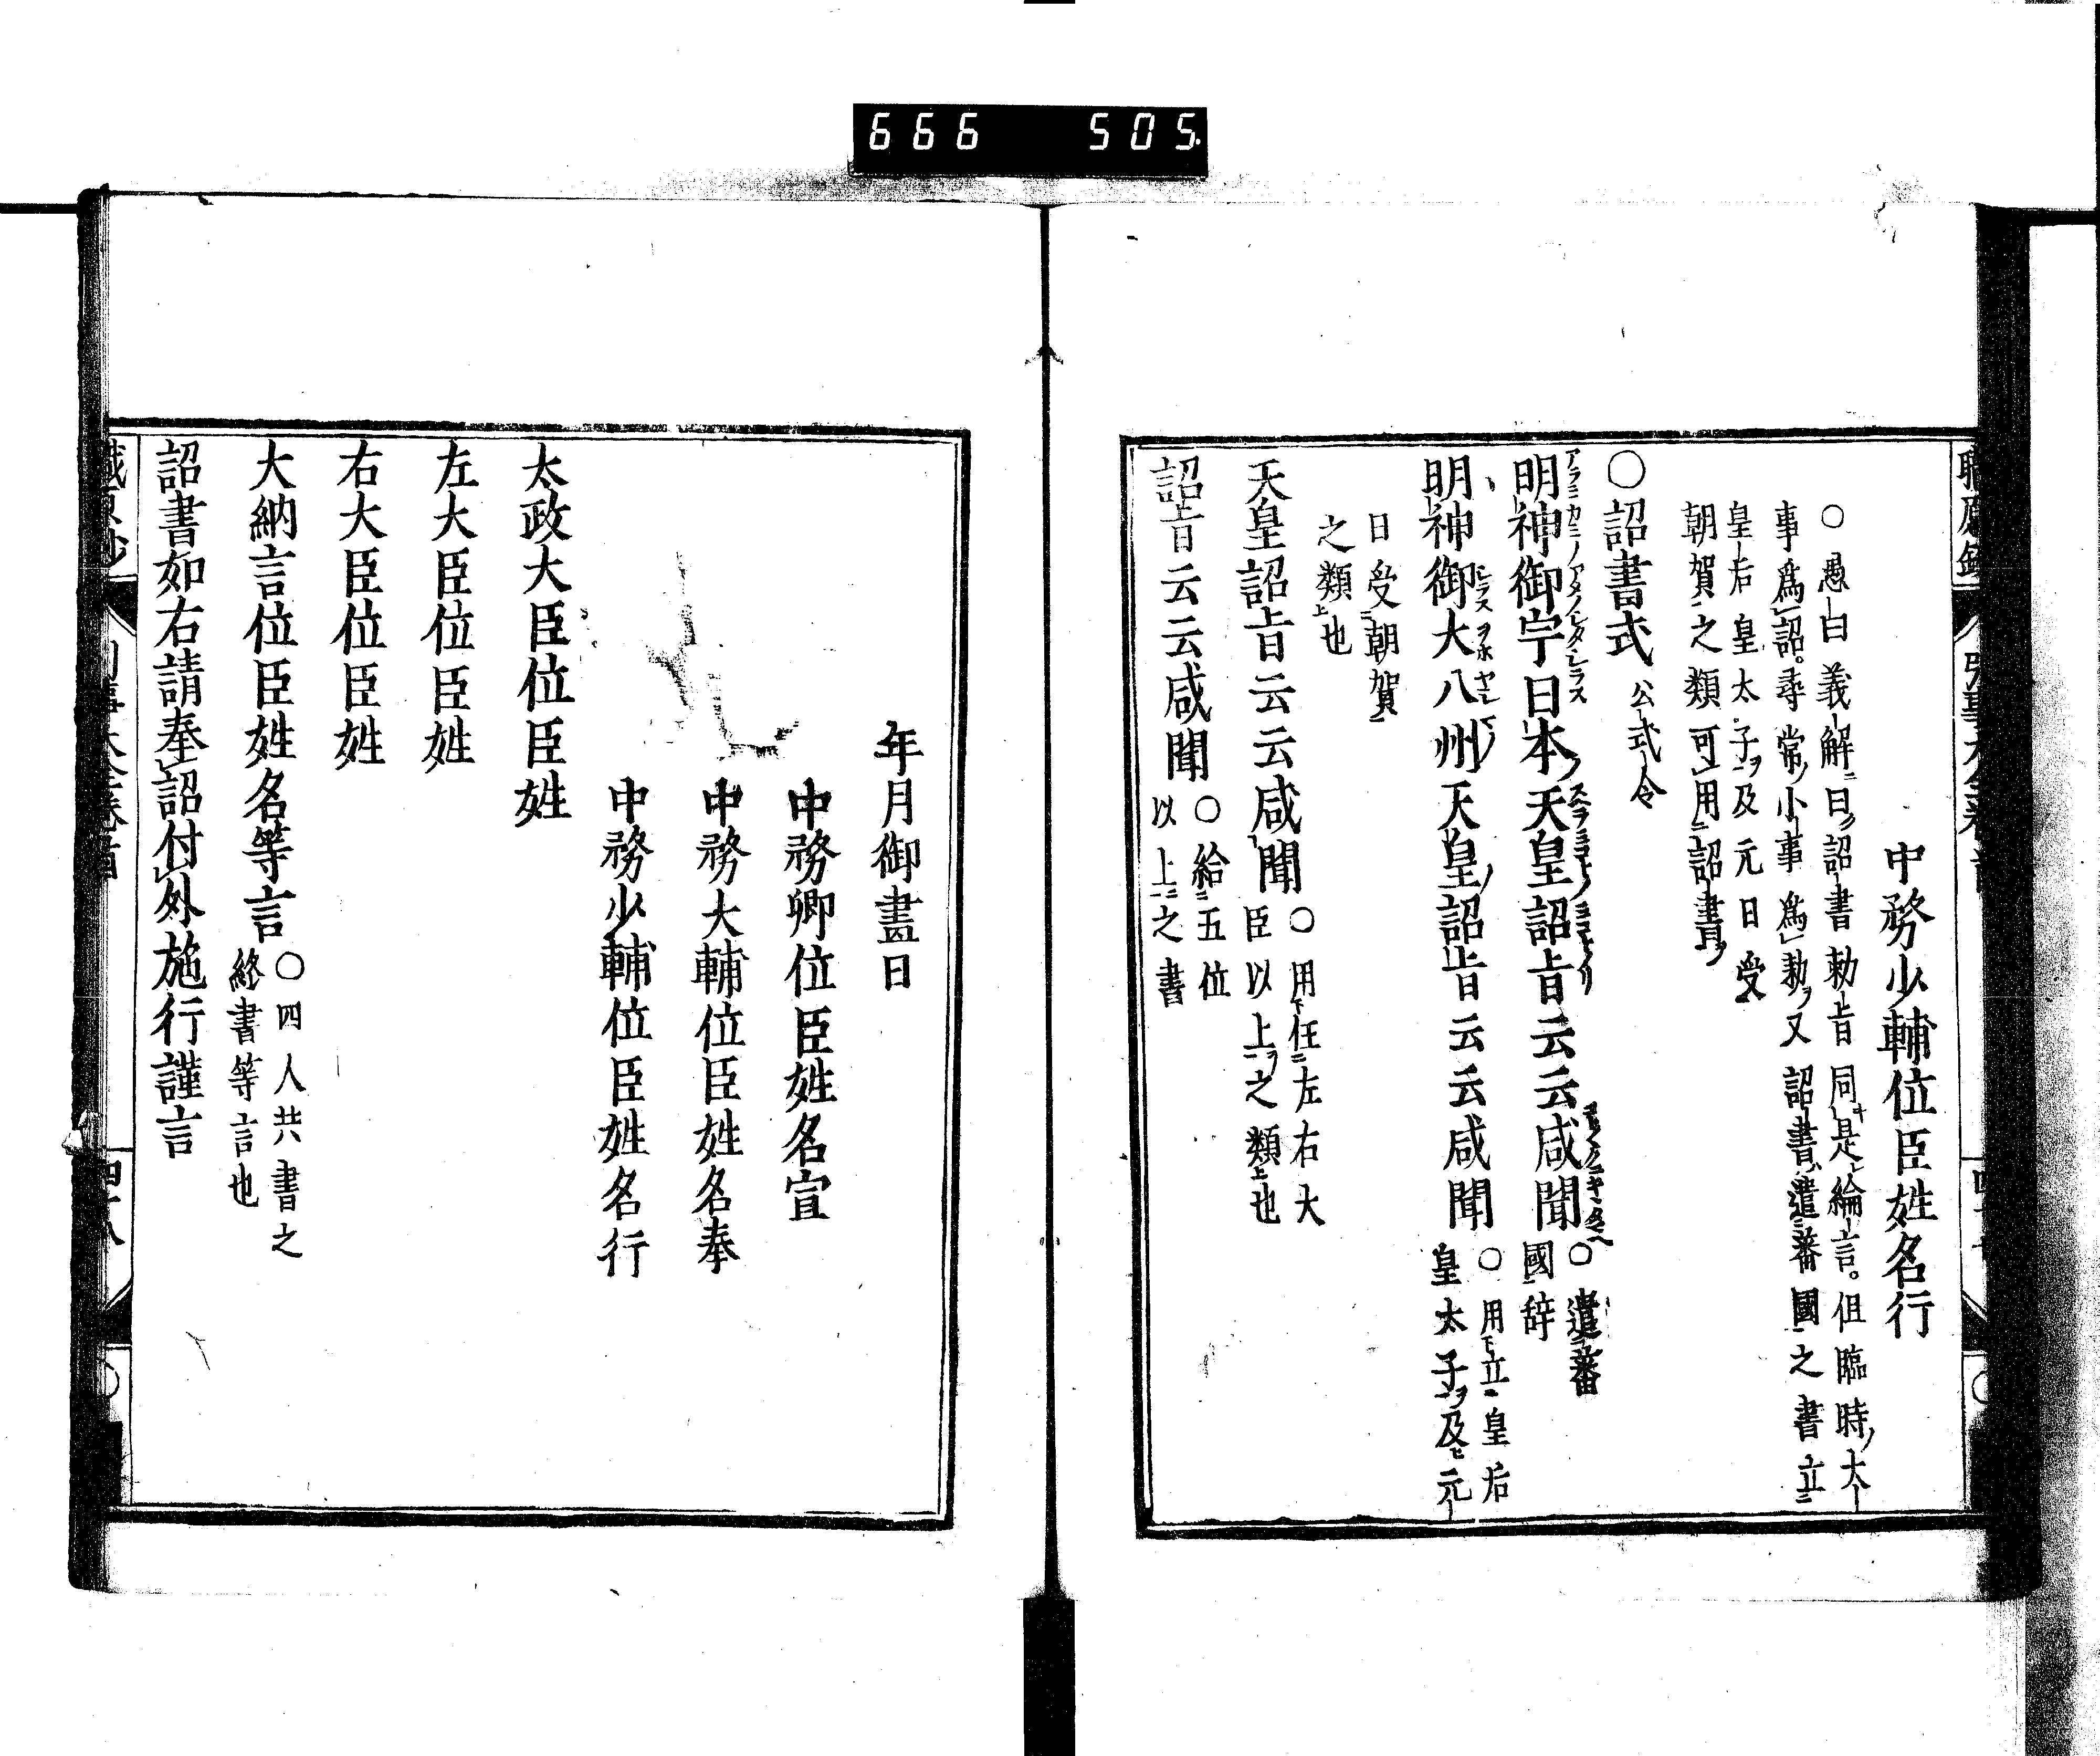 666 505
中務少輔位臣姓名行
○愚曰義解曰詔書勅旨同是綸言。但臨時大
事為詔。尋常小事為勅又詔書遣蕃國之書立
皇后皇太子及元日受
朝賀之類可用詔書
○詔書式 公式令
明神御宇日本天皇詔旨云云咸聞 ○遣蕃
國辞
明神御大八州天皇詔旨云云咸聞 ○用立皇后
皇太子及元
日受朝賀
之類也
天皇詔旨云云咸聞 ○用任左右大
臣以上之類也
詔旨云云咸聞 ○給五位
以上之書
年月御畫日
中務卿位臣姓名宣
中務大輔位臣姓名奉
中務少輔位臣姓名行
太政大臣位臣姓
左大臣位臣姓
右大臣位臣姓
大納言位臣姓名等言 ○四人共書之
終書等言也
詔書如右請奉詔付外施行謹言